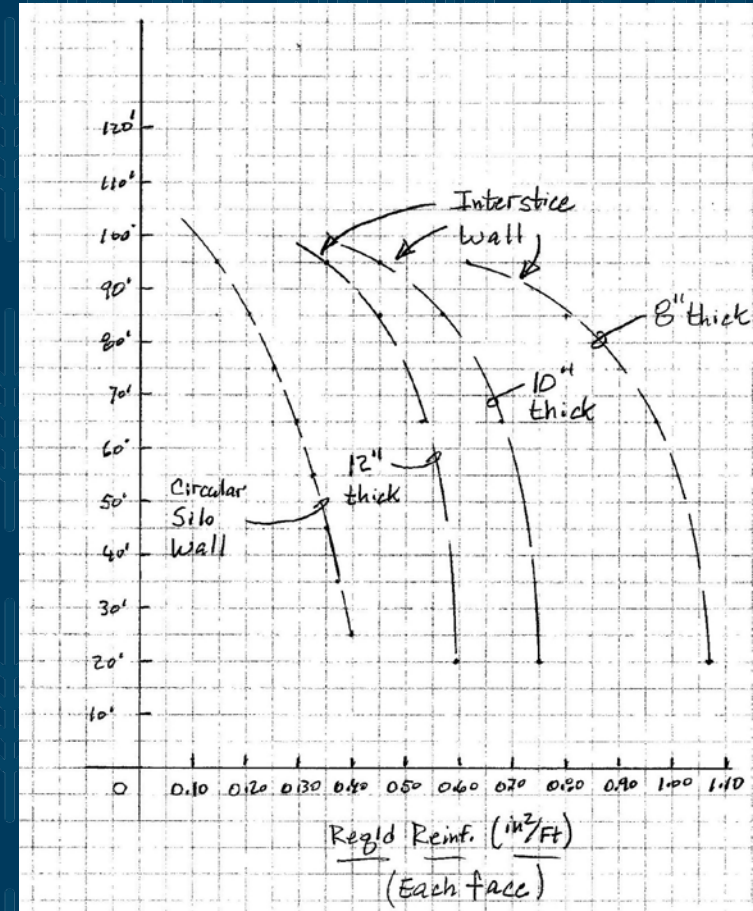 120'
110'
100'
90'
80'
70'
60'
50'
40'
30'
20'
10'
Interstice
Wall
8" thick
10"
thick
12"
thick
Circular
Silo
Wall
0 0.10 0.20 0.30 0.40 0.50 0.60 0.70 0.80 0.90 1.00 1.10
Req'd Reinf. (in²/Ft)
(Each face)